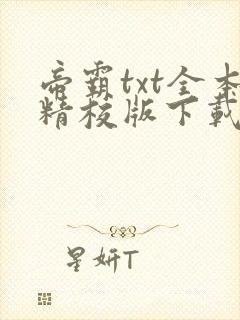 帝霸txt全本
精校版下载
星妍T